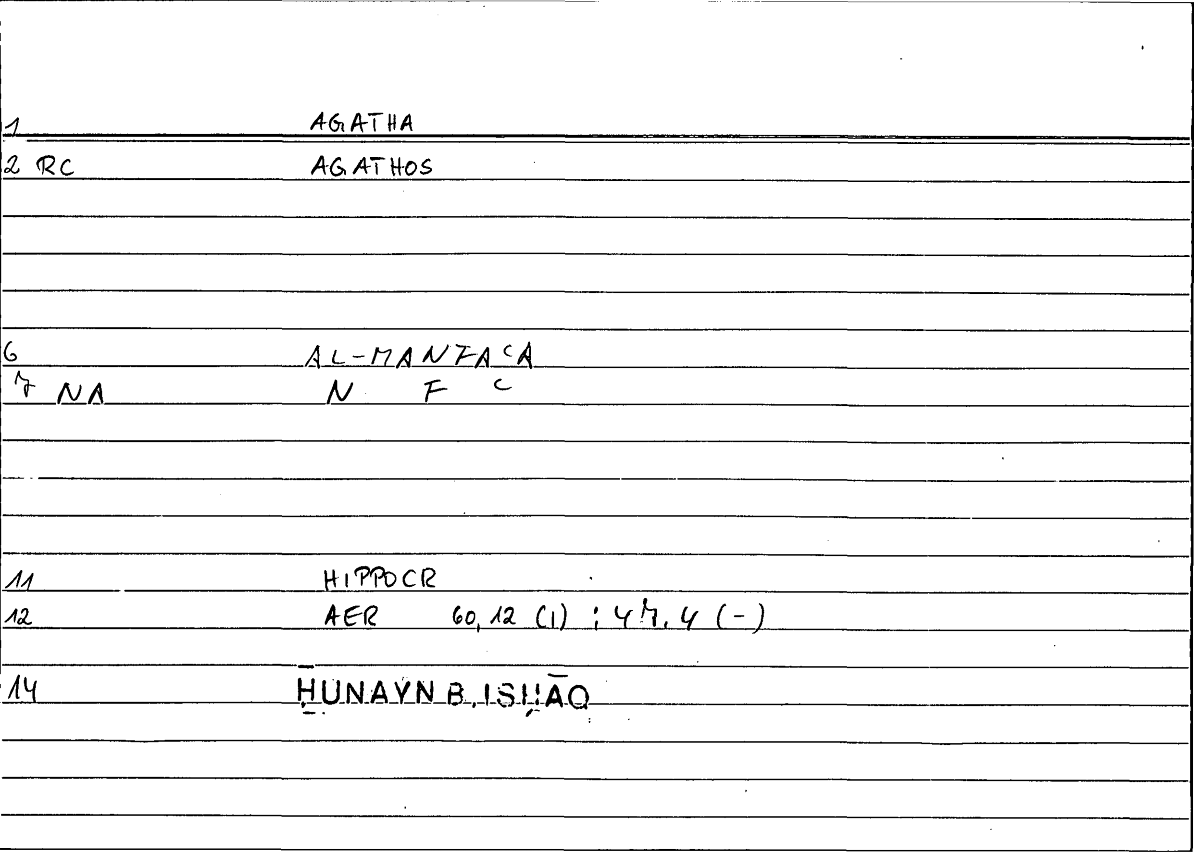 1 AGATHA
2 RC AGATHOS
6 AL-MANFAʿA
7 NA N F ʿ
11 HIPPOCR
12 AER 60,12 (1) ; 47,4 (-)
14 ḤUNAYN B. ISḤĀQ